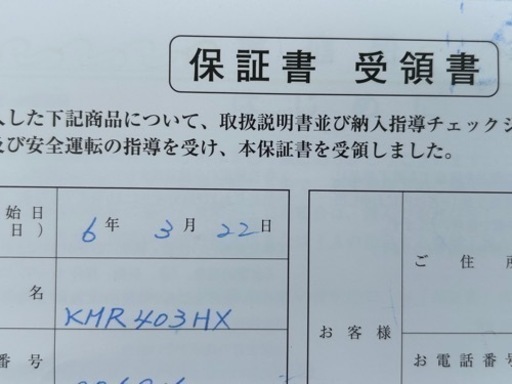 保証書 受領書
した下記商品について、取扱説明書並び納入指導チェックシ
及び安全運転の指導を受け、本保証書を受領しました。
始日
日）
6年 3月 22日
名
KMR403HX
お客様
ご住所
お電話番号
番号